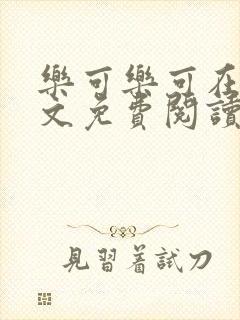 樂可樂可在
文免費閱讀
見習着試刀